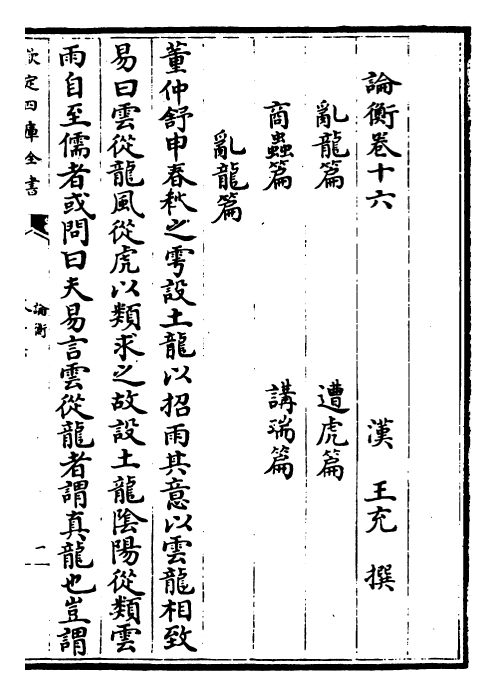 論衡卷十六
漢 王充 撰
亂龍篇 遭虎篇
商蟲篇 講瑞篇
亂龍篇
董仲舒申春秋之雩設土龍以招雨其意以雲龍相致
易曰雲從龍風從虎以類求之故設土龍隂陽從類雲
雨自至儒者或問曰夫易言雲從龍者謂真龍也豈謂
欽定四庫全書
論衡